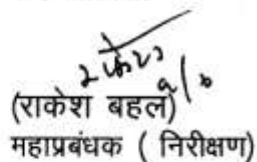 (राकेश बहल)
महाप्रबंधक ( निरीक्षण)